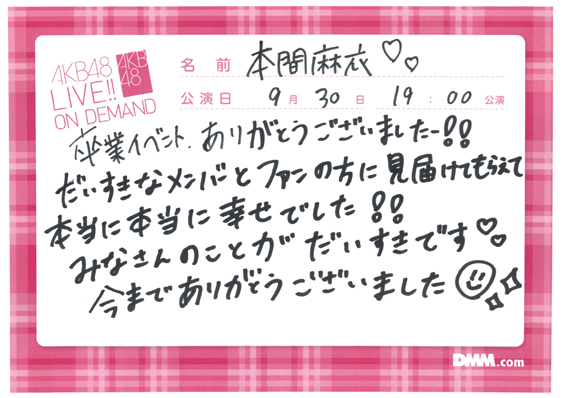 AKB48
LIVE!!
ON DEMAND
AKB
48
名 前 本間麻衣♡♡
公演日 9月 30日 19:00公演
卒業イベント、ありがとうございましたー!!
だいすきなメンバとファンの方に見届けてもらえて
本当に本当に幸せでした!!
みなさんのことがだいすきです♡♡
今までありがとうございました☺
DMM.com